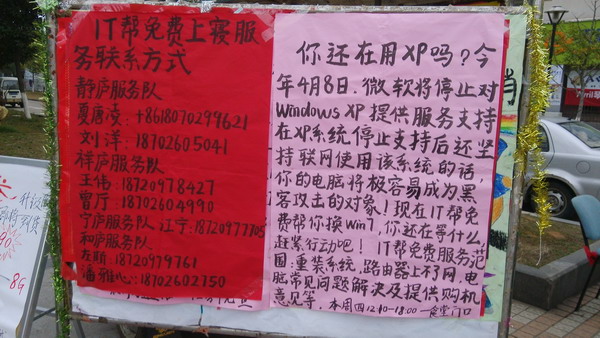 IT帮免费上寝服
务联系方式
静庐服务队
夏唐凌:+8618070299621
刘洋:18702605041
梓庐服务队
王伟:18720978427
雷厅:18702604990
宁庐服务队 江宁:18720977705
和庐服务队
左斯:18720979761
潘雅心:18702602750
你还在用XP吗?今
年4月8日.微软将停止对
Windows XP提供服务支持
在XP系统停止支持后还坚
持联网使用该系统的话,
你的电脑将极容易成为黑
客攻击的对象!现在IT帮免
费帮你换Win7,你还在等什么,
赶紧行动吧! IT帮免费服务范
围:重装系统,路由器上不了网,电
脑常见问题解决及提供购机
意见等. 本周四12:10-18:00 一食堂门口